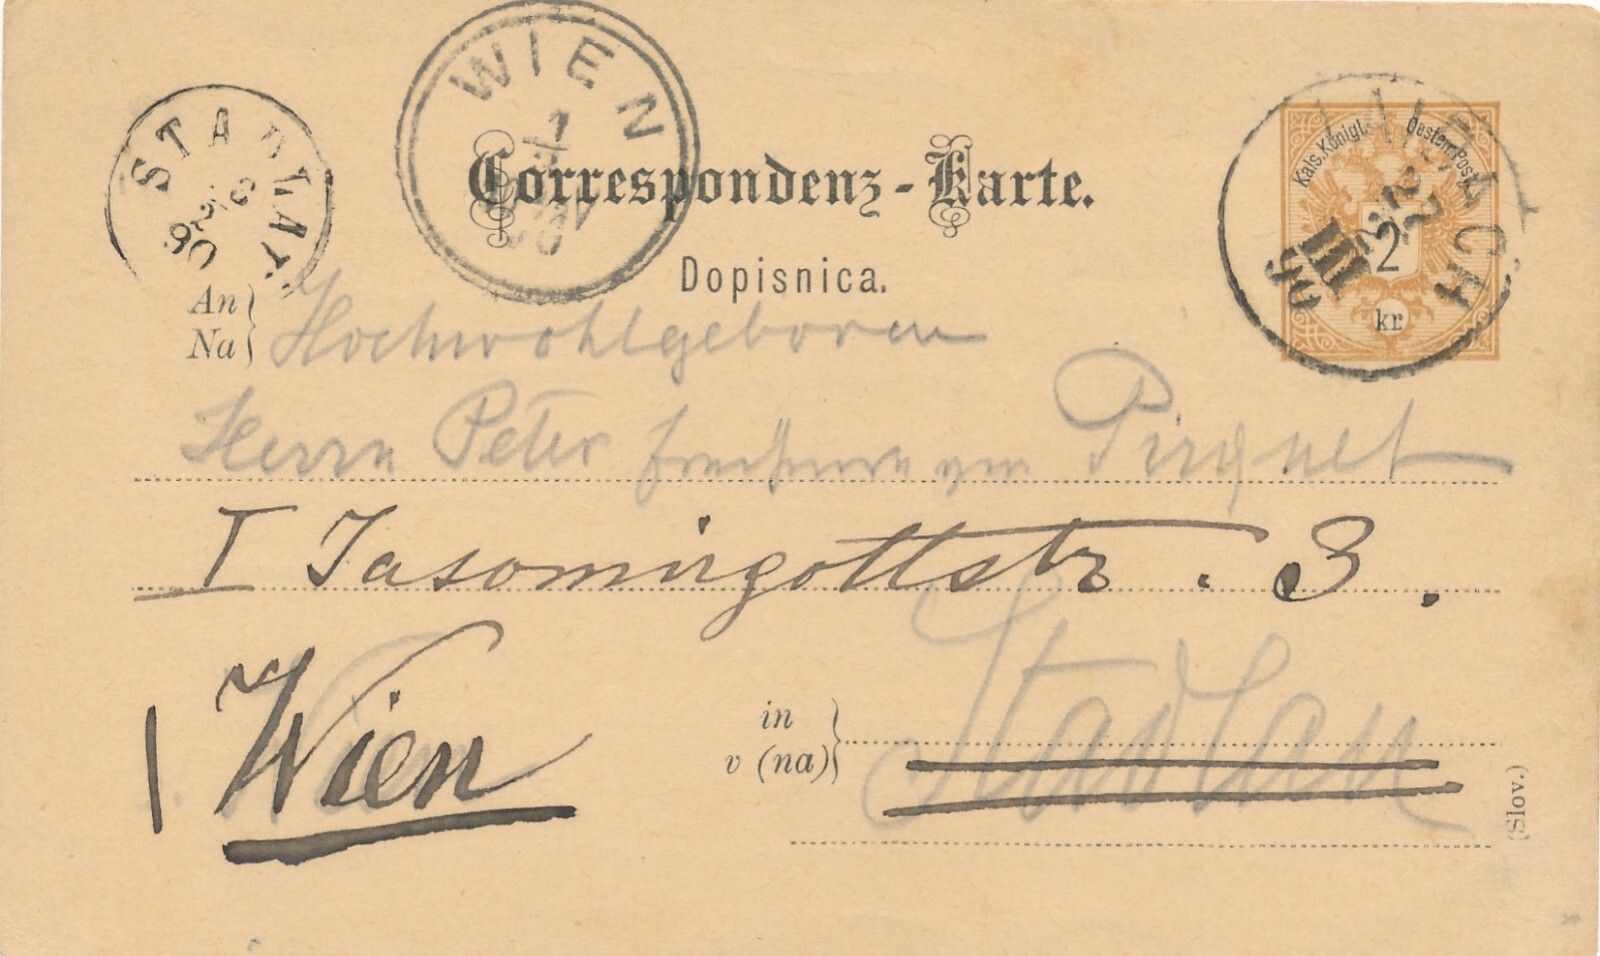 STADLAU
WIEN
Correspondenz-Karte.
Dopisnica.
Kais. Königl. Oesterr. Post
2
kr
III
90
An
Na
Hochwohlgeboren
Herrn Peter Freiherrn von Pirquet
I Jasomirgottstr. 3.
Wien
in
v (na)
Stadlau
(Slov.)